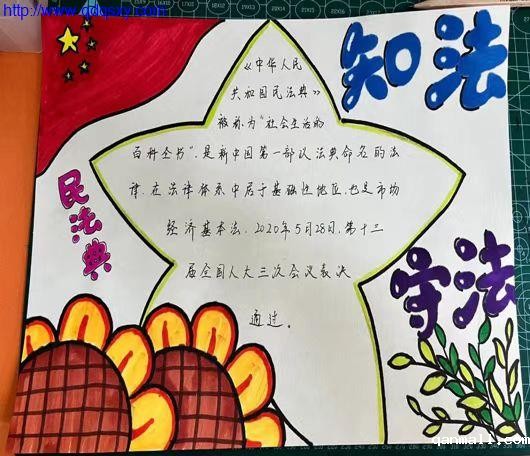 http://www.qdqsxy.com
知法
《中华人民
共和国民法典》
被称为“社会生活的
百科全书”,是新中国第一部以法典命名的法
律,在法律体系中居于基础性地位,也是市场
经济基本法。2020年5月28日,第十三
届全国人大三次会议表决
通过。
民法典
守法
qanmall.com